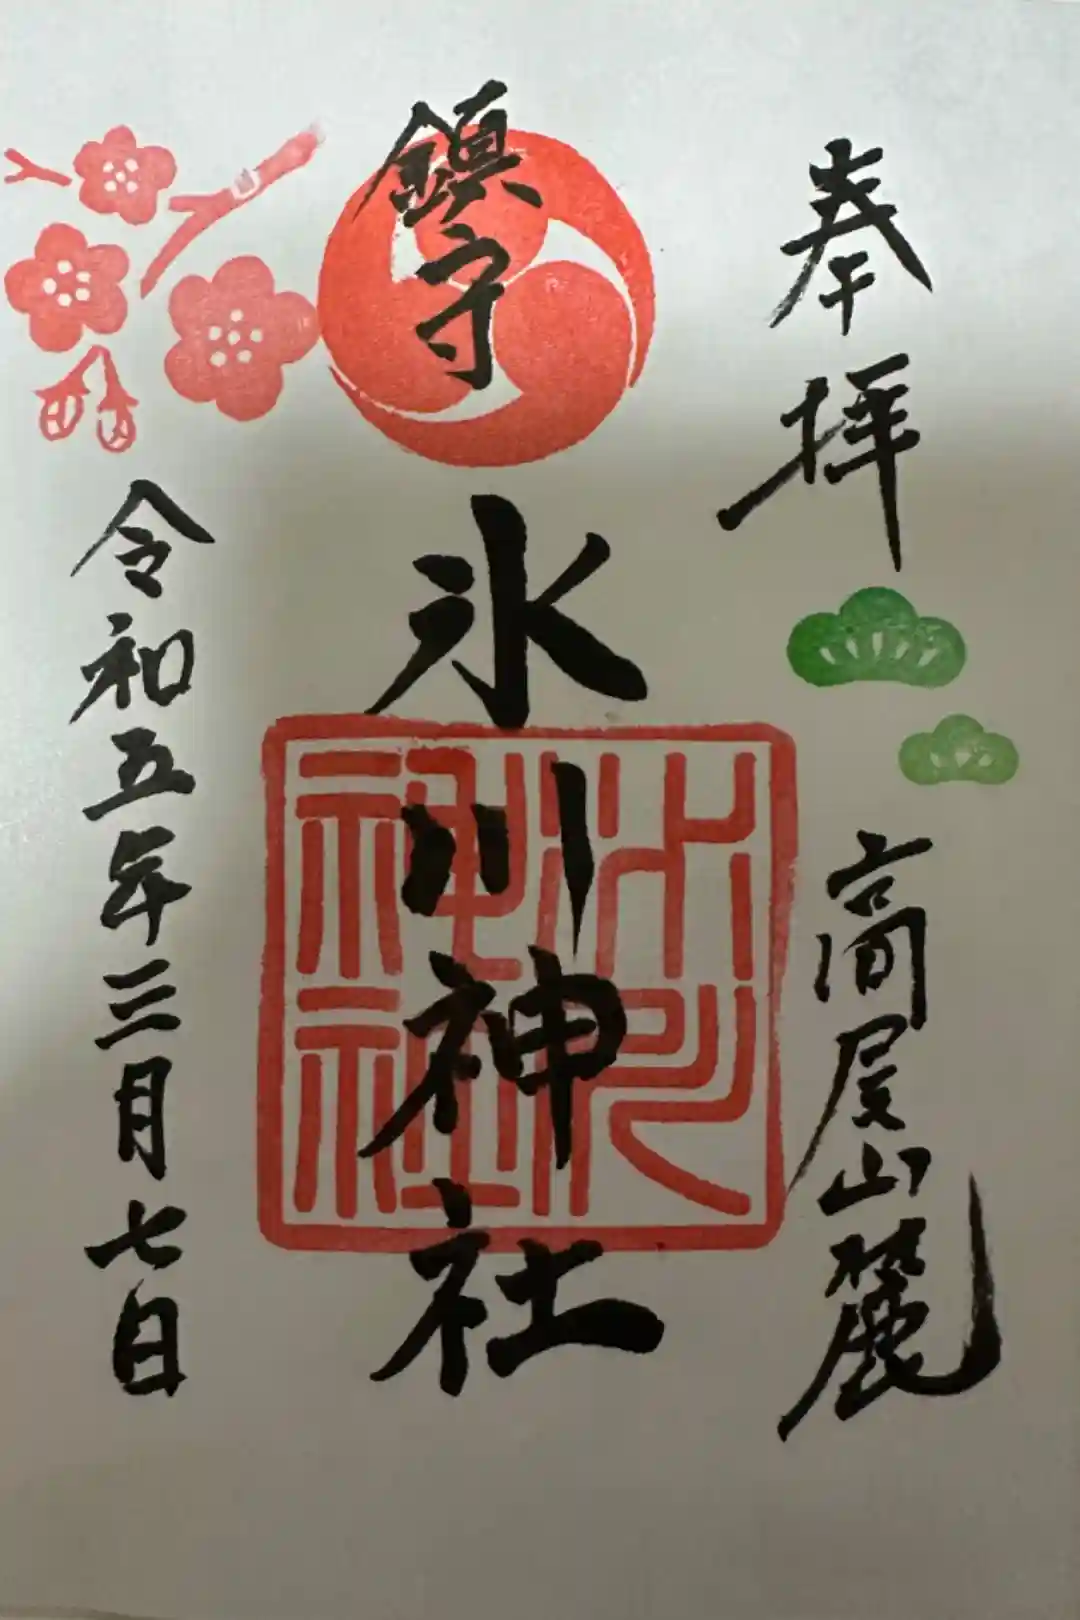 奉拝
高尾山麓
鎮守
氷川神社
氷川神社
令和五年三月七日